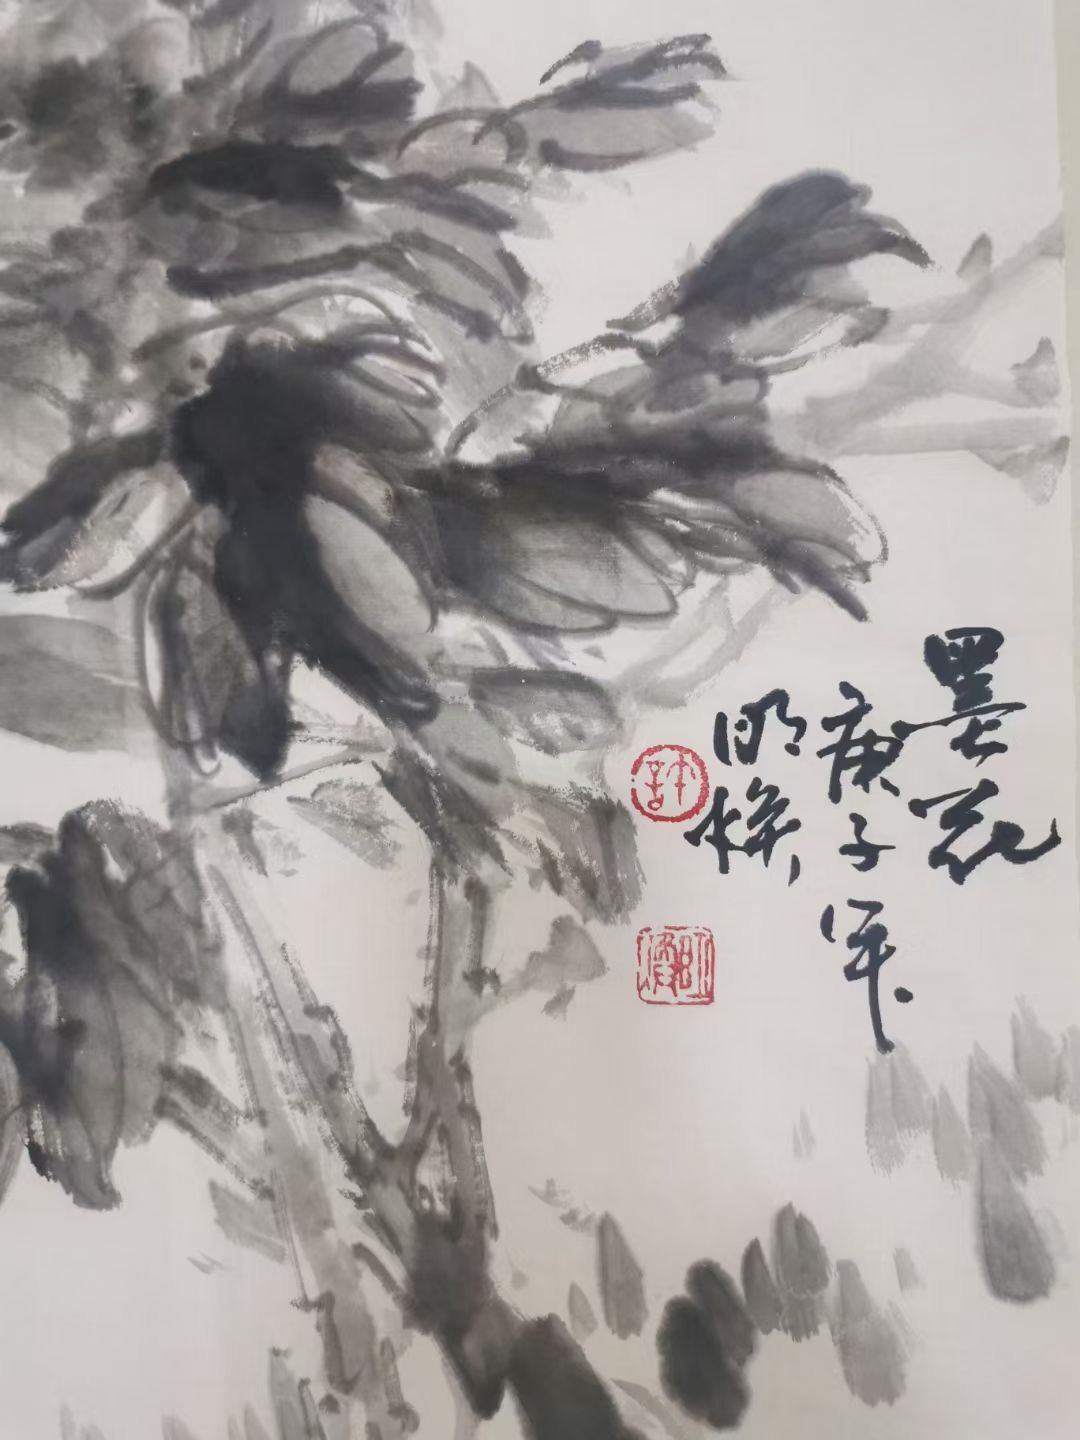 墨花
庚子年
明
許